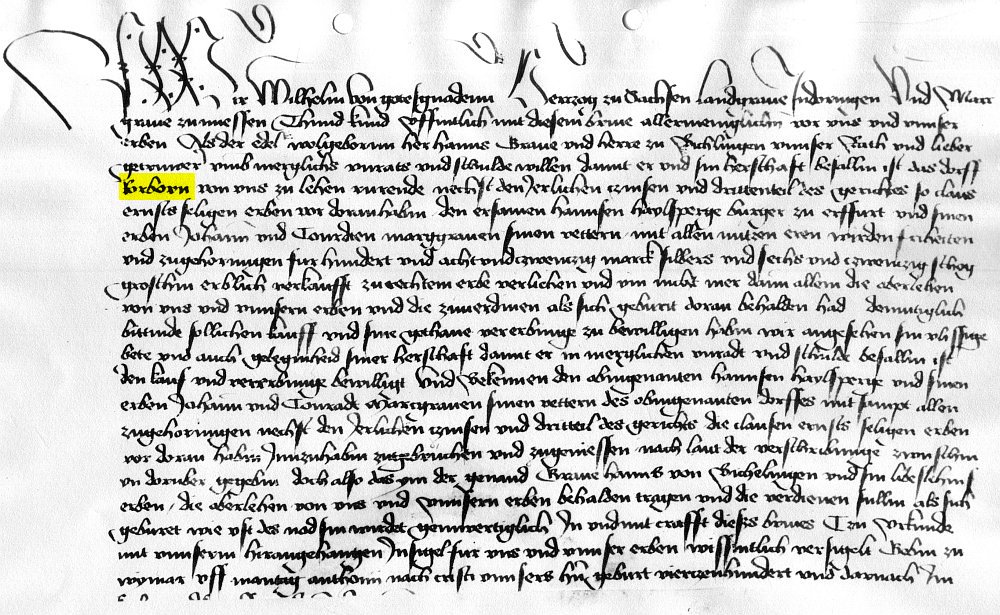 Wir Wilhelm von gotes gnaden Hertzog zu Sachsen Landgrave Indoringen Und Marc
grave zu miessen Thund kund offintlich mit diesem brive allermeniglichin vor uns und unnser
erben Als der edel wolgeborin her Hanns Grave und herre zu Bichlingen unnser Rath und lieber
getruwer umb merglichs unrats und schulde willen damit er und sin herschaft befallin ist das dorff
Korborn von uns zu lehen rurende nehst den Jerlichen czinsen und drittenteil des gerichtes so claus
ernsts seligen erben vor doran habin den ersamen Hannsen haylsperge burger zu erffurt und sinen
erben Johann und Conrdten marggraven sinen vettern mit allen nutzen eren wirden friheiten
und zugehorungen fur hundert und acht und czwenczig marck silbers und sechs und czwenczig schog
groschin erblich verkaufft zu rechtem erbe verlichen und im nichst mer dann allein die oberlehen
von uns und unnsern erben und die zuverdinen als sich geburt doran behalden had demutiglich
bittinde sollichen kauff und sine gethane vererbunge zu bewilligen habin wir angesehen sin vlissige
bete und auch geleginheid siner herschaft damit er in merglichen unradt und schulde befallin ist
den kauf und vererbunge bewilligt Und Bekennen den obingenanten hannsen haylsperge und sinen
erben Johann und Conradt Marcgraven sinen vettern des obingenanten dorffes mit sampt allen
zugehorungen nechst den Jerlichen czinsen und dritteil des gerichts die clausen ernsts seligen erben
vor doran habin Innzuhabin zugebruchen und zugeniessen nach laut der verschribunge zwuschin
in doruber gegebin doch also das im der genand Grave hanns von Bichelingen und sin libeslehins
erben die oberlehen von uns und unnsern erben behalden tragen und die verdienen sullin als sich
geburet wie offt des nod sin wirdet geinwertiglich In und mit crafft dieses brives Tzu Urkunde
mit unnserm hirangehangen Insigel fur uns und unnser erben wissintlich versigelt Gebin zu
wymar uff mantag anthonii nach cristi unnsers hern geburt vierczenhundert und darnach Im